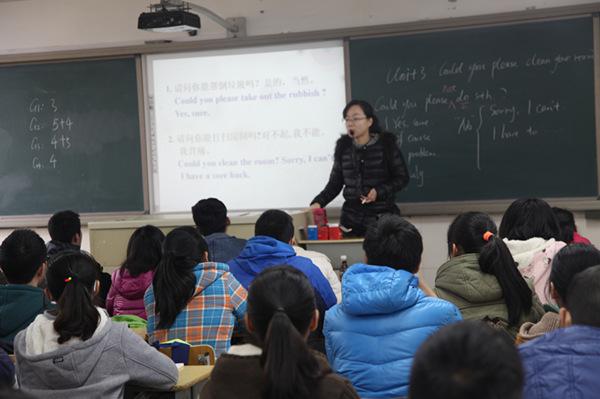 G1: 3
G2: 5+4
G3: 4+3
G4: 4
1. 请问你能帮倒垃圾吗？是的，当然。
Could you please take out the rubbish?
Yes, sure.
2. 请问你能打扫房间吗?对不起,我不能。
我背痛。
Could you clean the room? Sorry, I can't
I have a sore back.
Unit 3 Could you please clean your room
not
Could you please do sth.?
Yes sure
of course
problem
No
Sorry, I can't
I have to ...